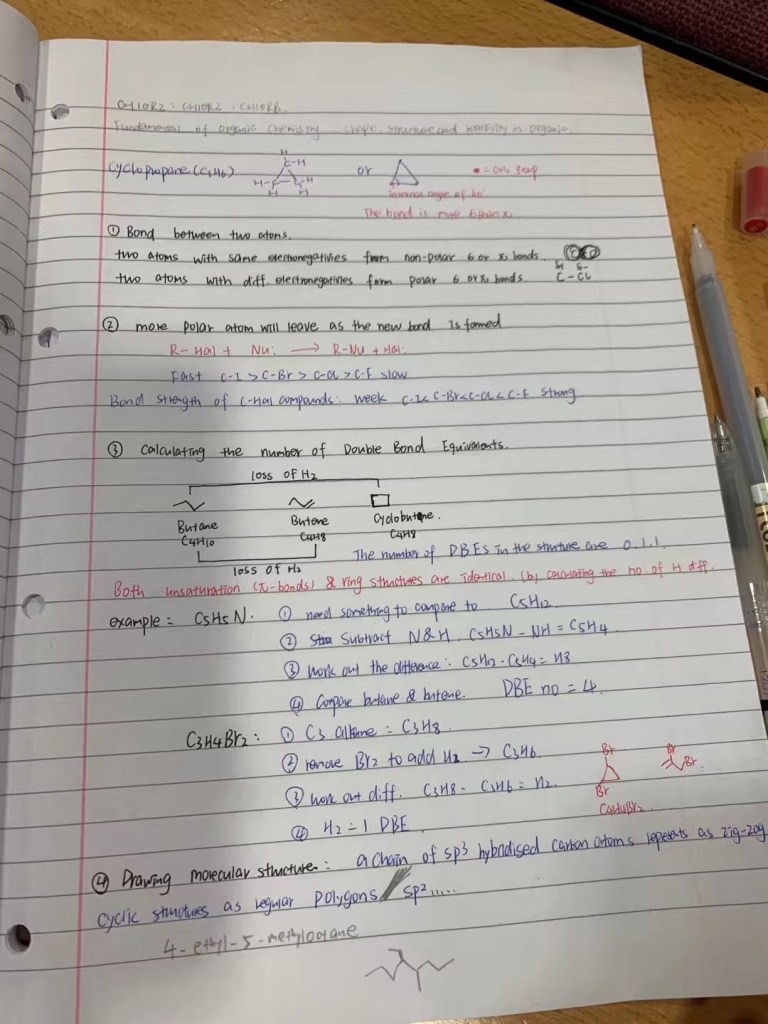 CH10R2: CH10R2. CH10RB.
Fundamental of organic chemistry. shape, structure and reactivity in organic.
Cyclopropane (C3H6) or = CH2 group
C-H
H-C-C-H
H H
internal angle of 60°
The bond is more
① Bond between two atoms.
two atoms with same electronegativities form non-polar σ or π bonds.
two atoms with diff. electronegativities form polar σ or π bonds.
δ+ δ-
C - Cl
② more polar atom will leave as the new bond is formed
R-Hal + Nu: → R-Nu + Hal:
Fast C-I > C-Br > C-Cl > C-F slow
Bond strength of C-Hal compounds: week C-I < C-Br < C-Cl < C-F strong
③ Calculating the number of Double Bond Equivalents.
loss of H2
Butane Butene Cyclobutane.
C4H10 C4H8 C4H8
loss of H2
The number of DBEs in the structure are 0.1.1.
Both unsaturation (π-bonds) & ring structures are identical. (by calculating the no. of H diff.
example: C5H5N. ① need something to compare to C5H12
② Subtract N&H. C5H5N - NH = C5H4
③ Work out the difference: C5H12 - C5H4 = H8
④ Compare butane & butene. DBE no = 4.
C3H4Br2: ① C3 alkane = C3H8
② remove Br2 to add H2 → C3H6
③ work out diff. C3H8 - C3H6 = H2.
④ H2 = 1 DBE
Br Br
Br Br.
C4H4Br2
④ Drawing molecular structure: a chain of sp3 hybridised carbon atoms repeats as zig-zag
cyclic structures as regular polygons / sp2.....
4-ethyl-5-methyloctane